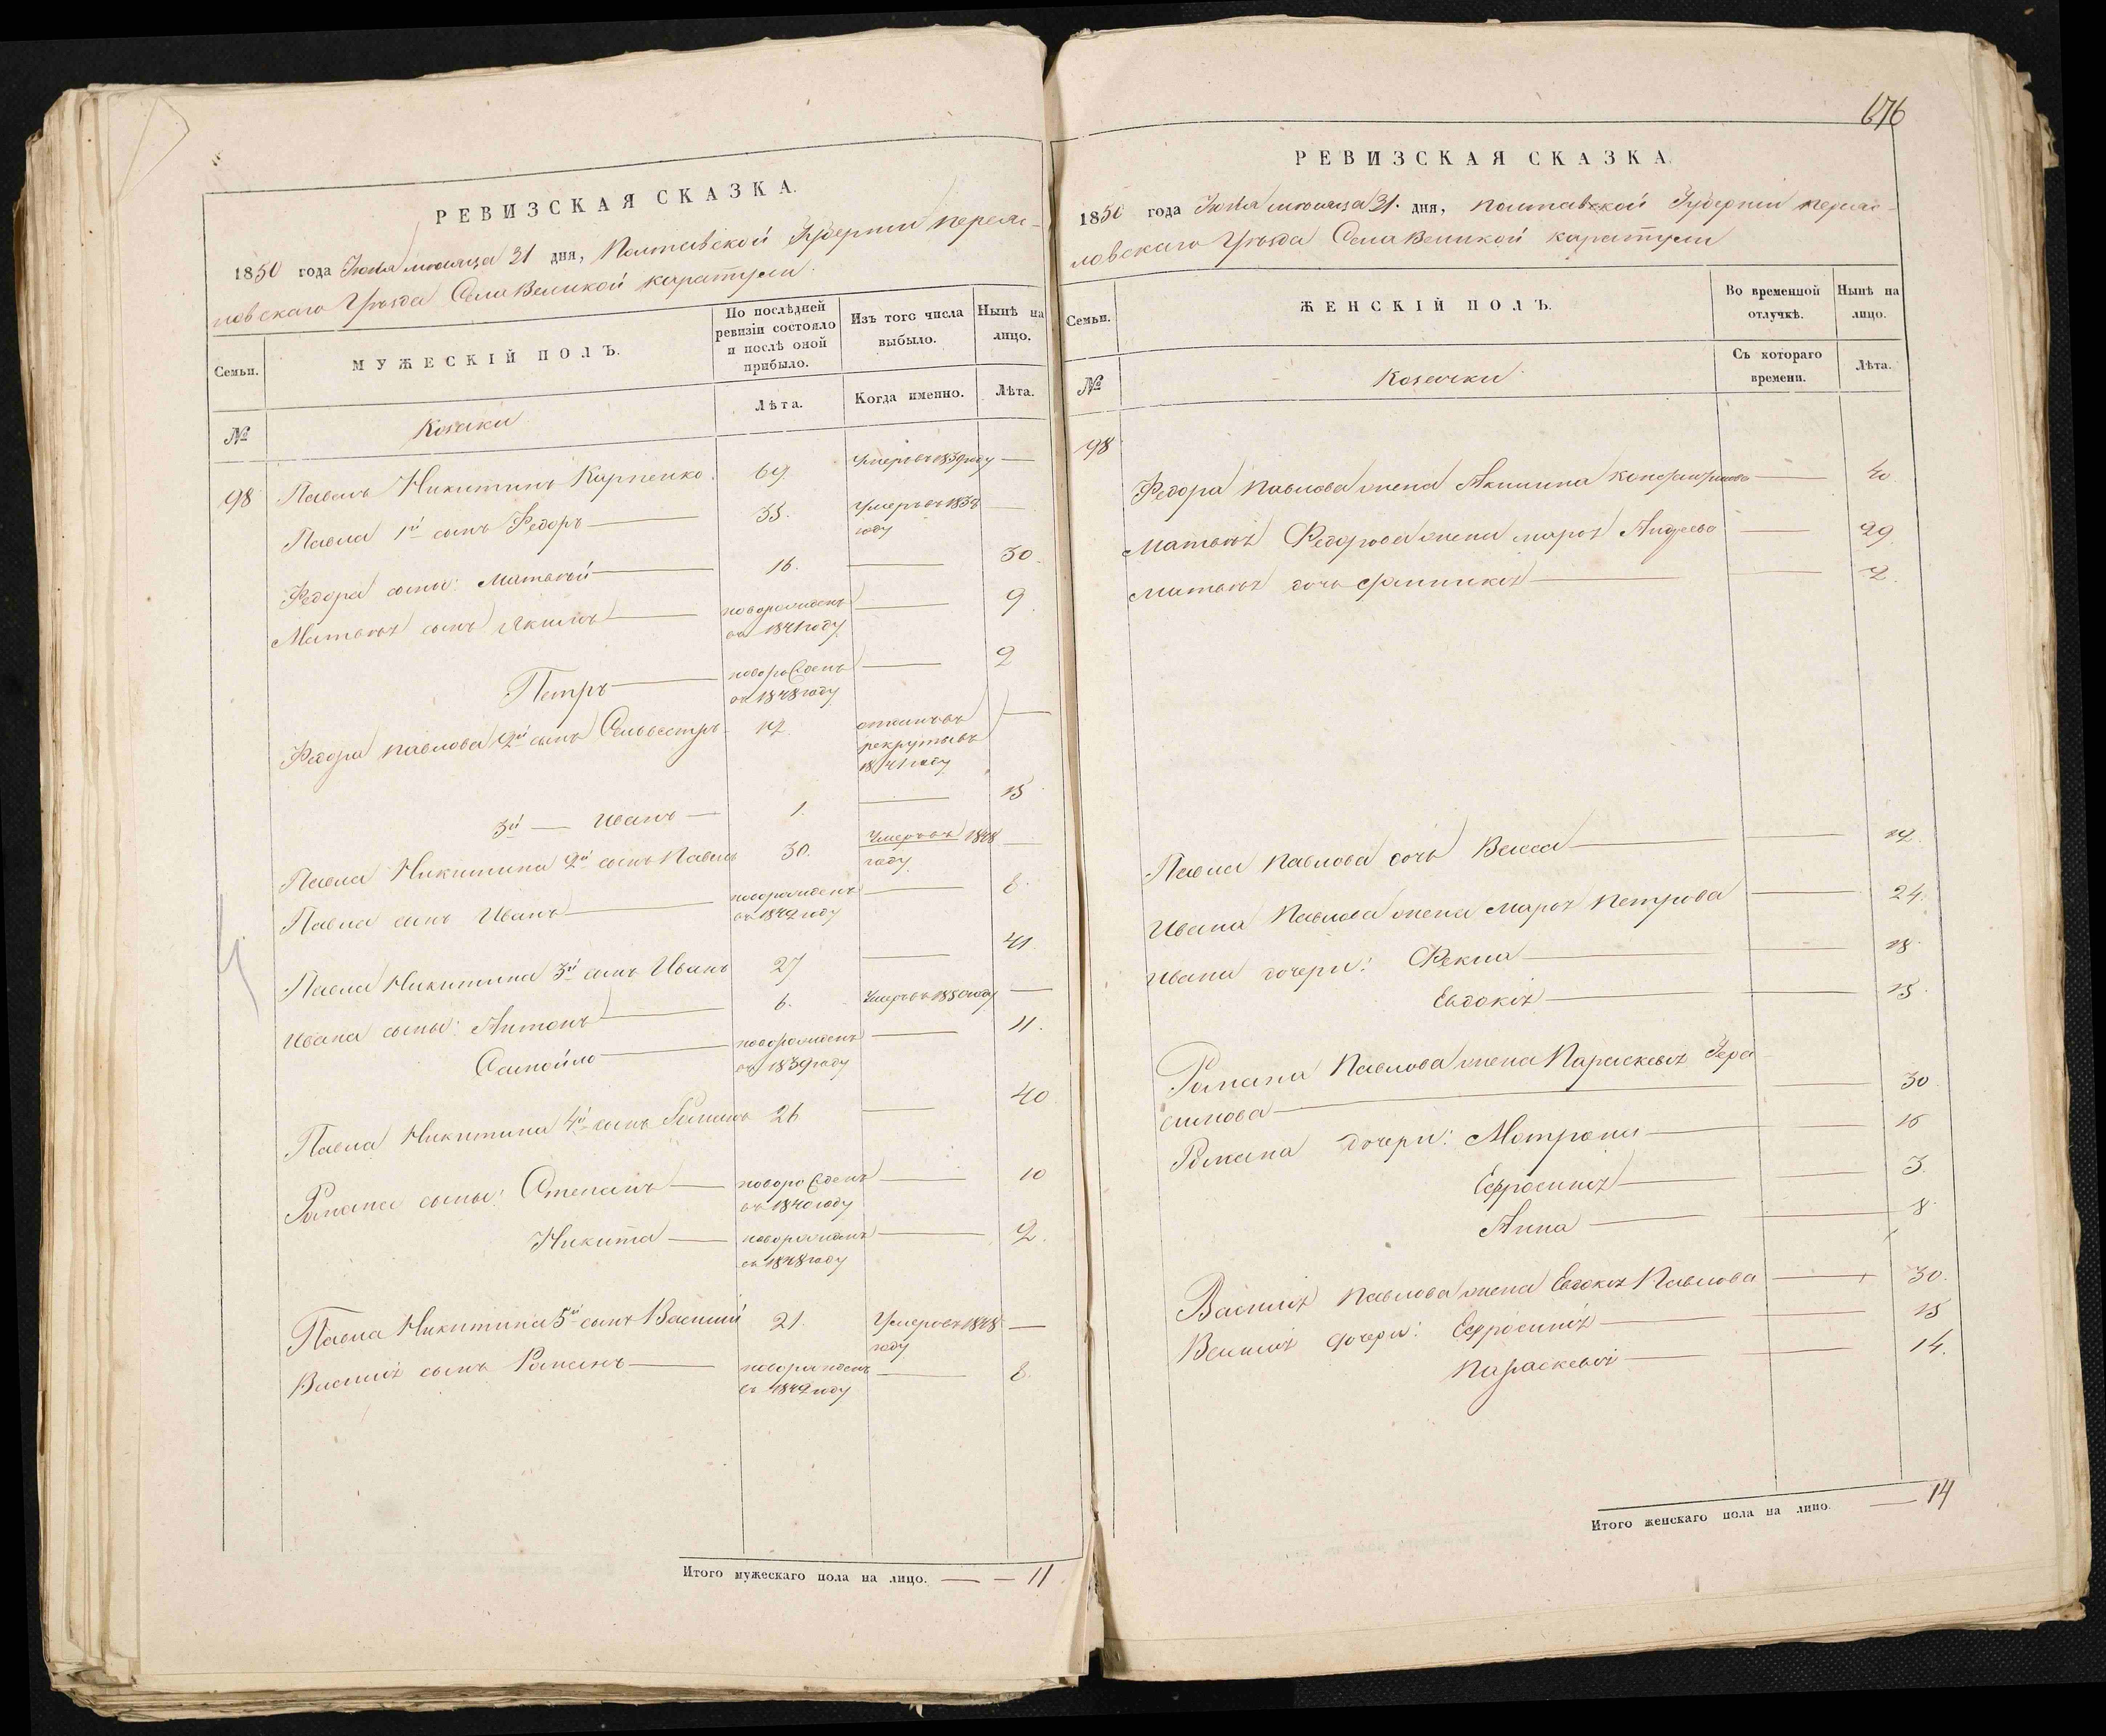 РЕВИЗСКАЯ СКАЗКА.
1850 года Июня месяца 21 дня, Полтавской Губернии переяс-
ловскаго Уѣзда Села Великой каратули.
Семьи.
МУЖЕСКІЙ ПОЛЪ.
По послѣдней ревизіи состояло и послѣ оной прибыло.
Изъ того числа выбыло.
Нынѣ на лицо.
№
Козаки
Лѣта.
Когда именно.
Лѣта.
98 Павелъ Никитинъ Карпенко. 69. Умеръ въ 1839 году —
Павла 1й сынъ Федоръ — 35. Умеръ въ году —
Федора сыны: Матвѣй — 16. — 30.
Матвѣя сынъ Якимъ — новорожденъ — 9.
въ 1841 году
Петръ — новорожденъ — 2
въ 1848 году
Федора Павлова 2й сынъ Сельвестръ — 12. отданъ въ —
рекруты въ
1841 году
3й — Иванъ — 1. — 15
Павла Никитина 2й сынъ Павелъ 30. Умеръ въ 1848 —
году
Павла сынъ Иванъ — новорожденъ — 8.
въ 1842 году
Павла Никитина 3й сынъ Иванъ 27 — 41.
Ивана сыны: Антонъ — 6. Умеръ въ 1850 году —
Самойло — новорожденъ — 11.
въ 1839 году
Павла Никитина 4й сынъ Романъ 26 — 40
Романа сыны: Степанъ — новорожденъ — 10
въ 1840 году
Никита — новорожденъ — 2.
въ 1848 году
Павла Никитина 5й сынъ Василий 21. Умеръ въ 1848 —
году
Василія сынъ Романъ — новорожденъ — 8.
въ 1842 году
Итого мужескаго пола на лицо. — — 11
676
РЕВИЗСКАЯ СКАЗКА.
1850 года Июня месяца 21. дня, полтавской Губернии переяс-
ловскаго Уѣзда Села Великой каратули
Семьи.
ЖЕНСКІЙ ПОЛЪ.
Во временной отлучкѣ.
Нынѣ на лицо.
№
Козачки
Съ котораго времени.
Лѣта.
98
Федора Павлова жена Акилина — 40
Матвѣя Федорова жена марѳа Андреева — 29.
Матвѣя дочь — 2.
Павла Павлова дочь Васса — — 12.
Ивана Павлова жена Марѳа Петрова — 24.
Ивана дочери: Фекла — — 18.
Евдокія — — 15.
Романа Павлова жена Параскевія Гера-
симова — — 30
Романа дочери: Мотрона — — 16
Евфросинія — — 3.
Анна — — 8.
Василія Павлова жена Евдокія Павлова — 30.
Василія дочери: Евфросинія — — 15
Параскевія — — 14.
Итого женскаго пола на лицо. — 14